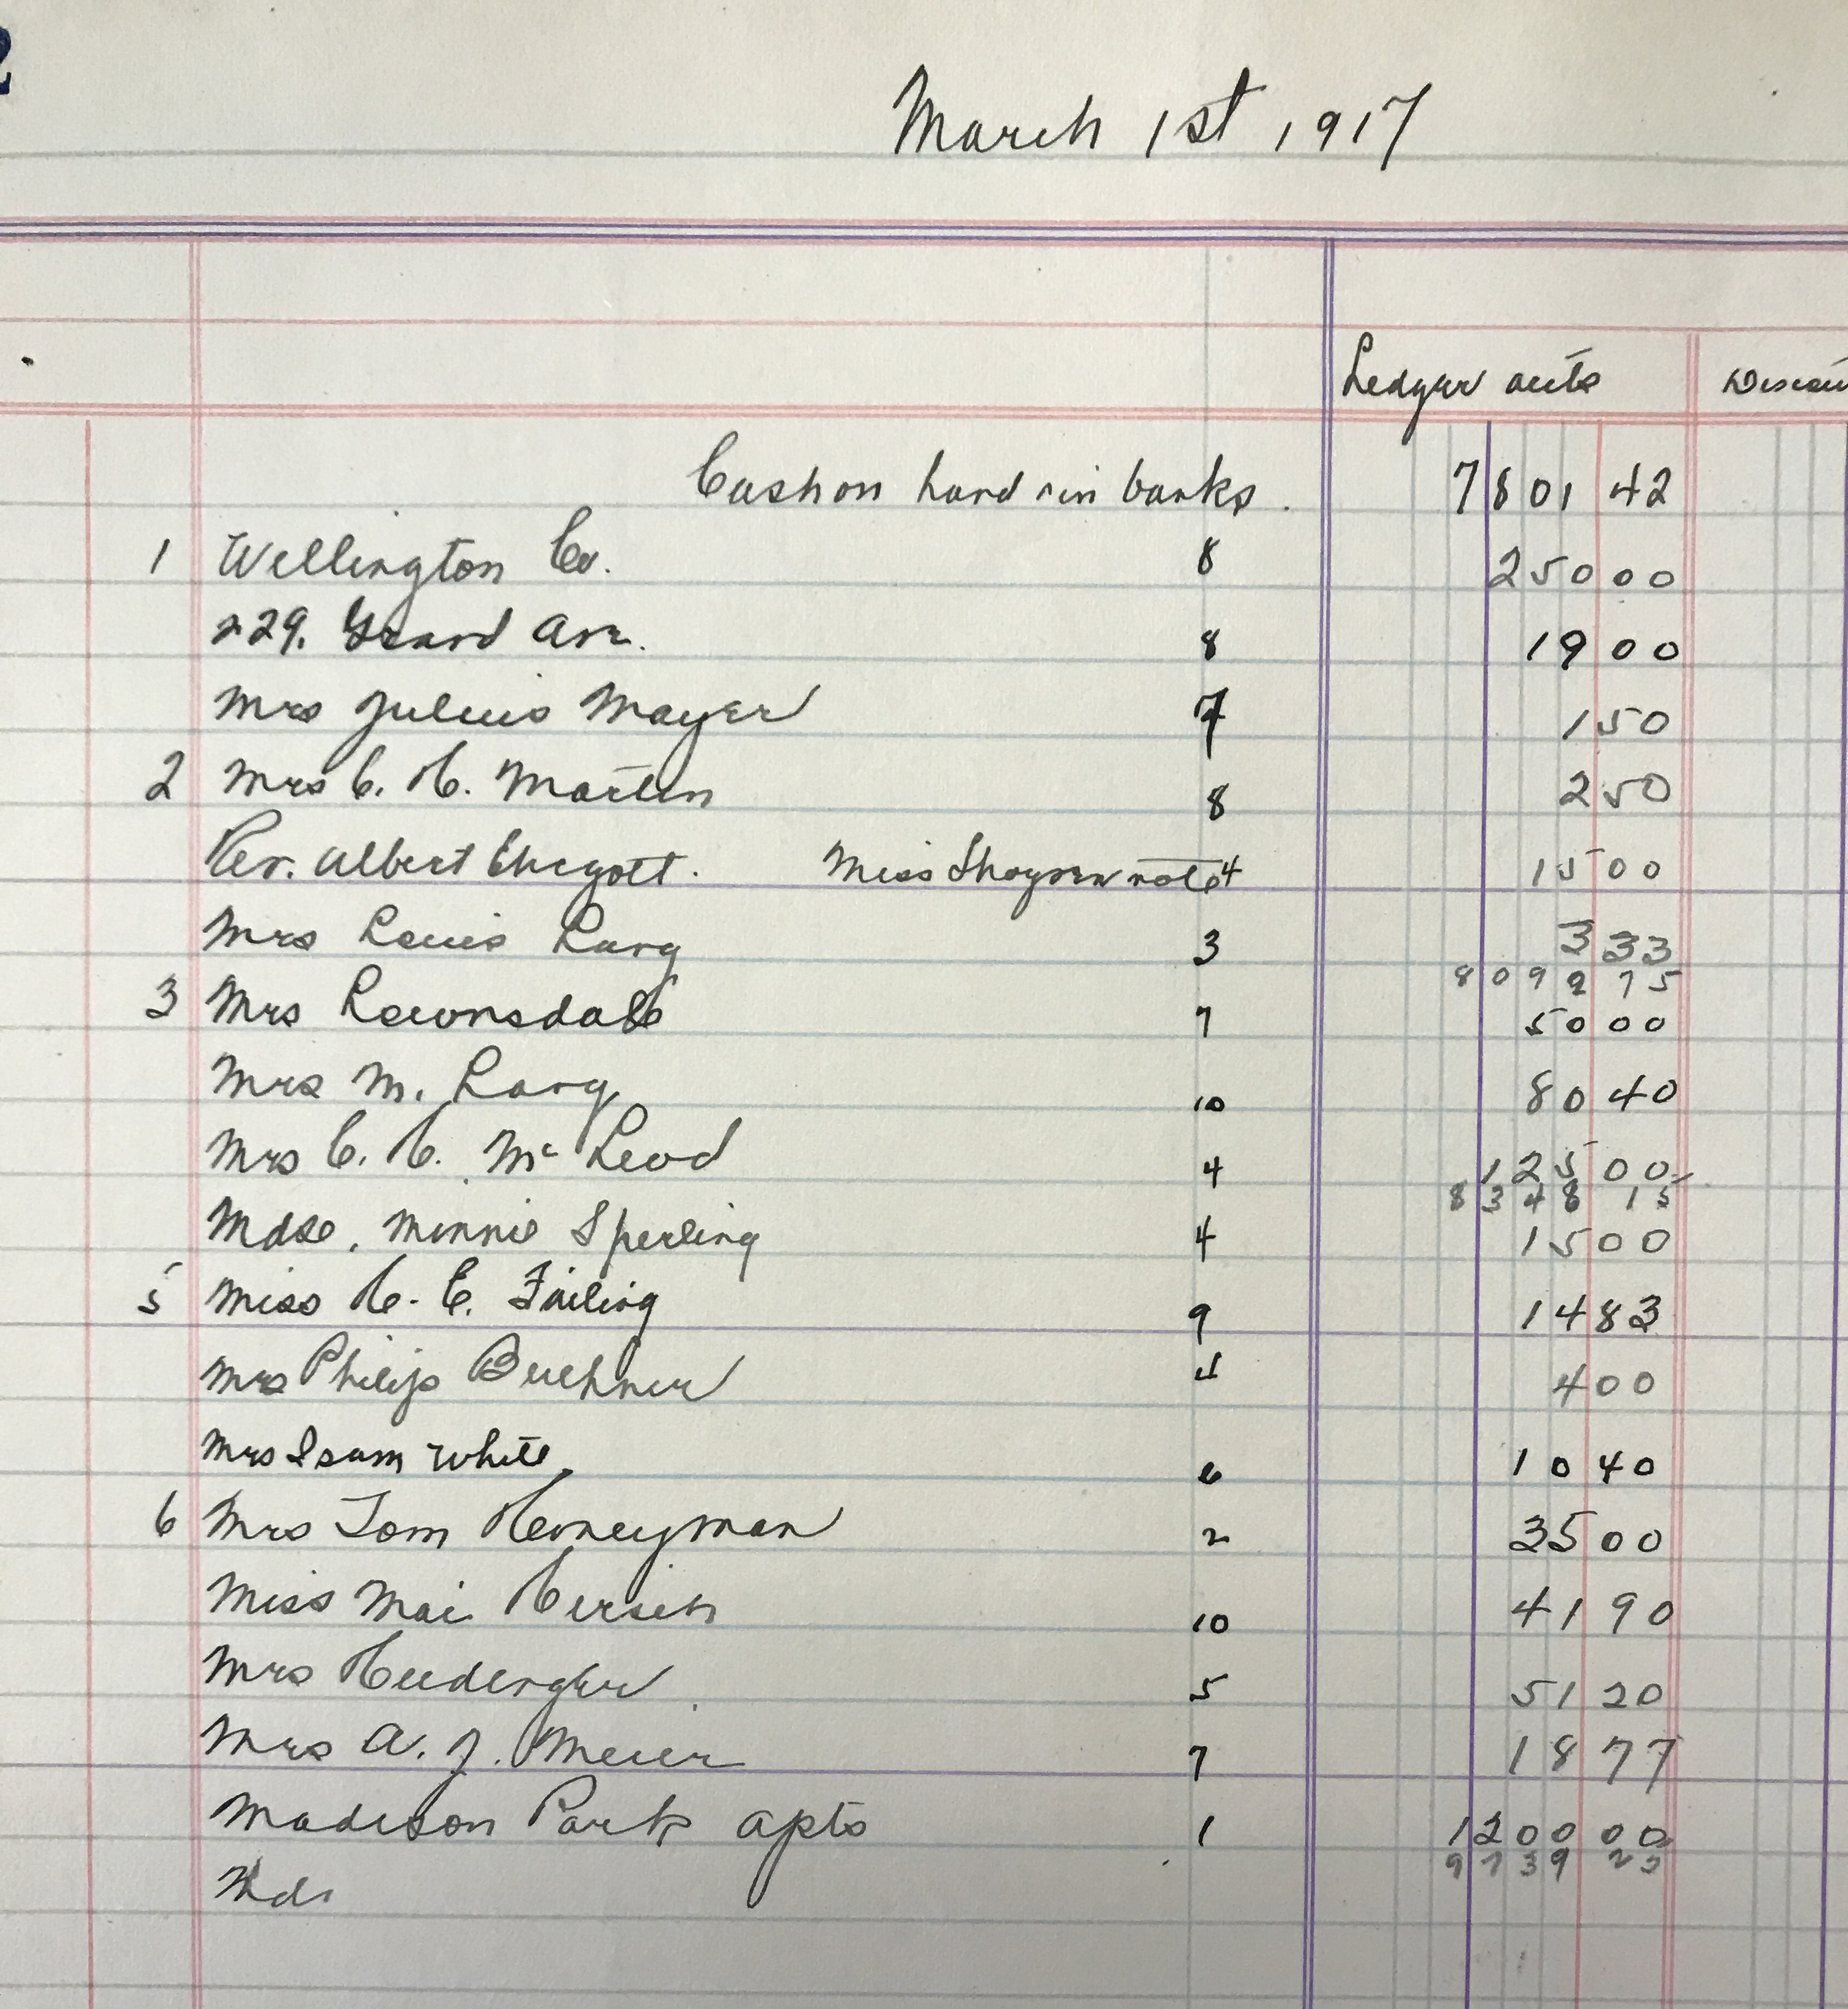 2
March 1st, 1917
Ledger accts
Cash on hand & in banks. 7801 42
1 Wellington Co. 8 250 00
229. Grand Ave. 8 19 00
Mrs Julius Mayer 7 1 50
2 Mrs C. H. Martin 8 2 50
Rev. Albert Ehrgott. Miss note 4 15 00
Mrs Louis Lang 3 3 33
8092 75
3 Mrs Lownsdale 7 50 00
Mrs M. Lang 10 80 40
Mrs C. H. Mc Leod 4 125 00
8348 15
Mdse. Minnie Sperling 4 15 00
5 Miss H. E. Failing 9 14 83
Mrs Philip Buehner 4 4 00
Mrs Isam White 6 10 40
6 Mrs Tom Honeyman 2 35 00
Miss Mai Hirsch 10 41 90
Mrs 5 51 20
Mrs A. J. Meier 7 18 77
Madison Park apts 1 1200 00
9739 25